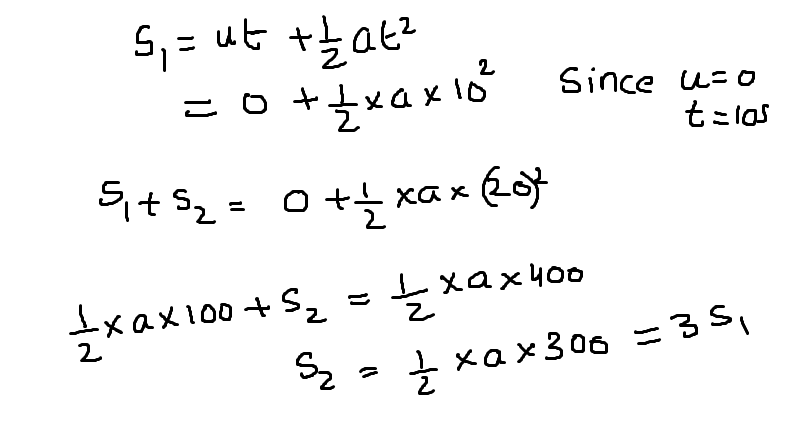 S₁ = ut + ½at²
= 0 + ½ × a × 10² Since u=0
t=10s
S₁ + S₂ = 0 + ½ × a × (20)²
½ × a × 100 + S₂ = ½ × a × 400
S₂ = ½ × a × 300 = 3S₁